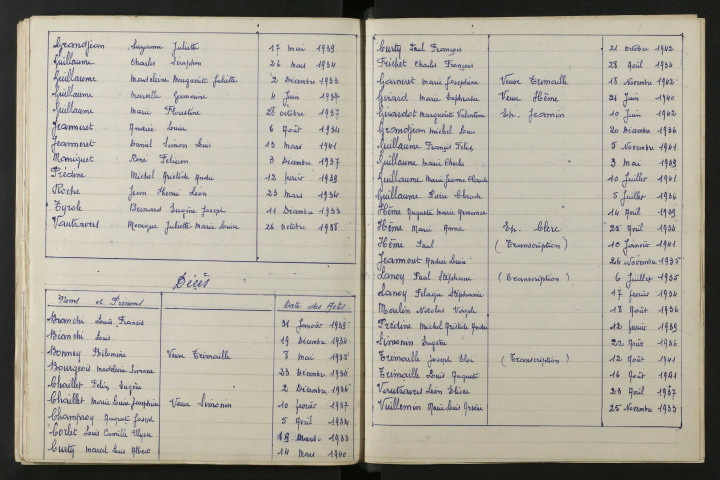 Grandjean Suzanne Juliette 17 Mai 1939
Guillaume Charles Séraphin 26 Mars 1934
Guillaume Madeleine Marguerite Juliette 2 Décembre 1933
Guillaume Marcelle Germaine 4 Juin 1937
Guillaume Marie Florestine 28 octobre 1937
Jeanneret Andrée Louise 6 Août 1934
Jeanneret Daniel Simon Louis 13 Mars 1941
Moniquet René Félicien 3 Décembre 1937
Prédine Michel Aristide André 12 février 1939
Roche Jean Henri Léon 23 Mars 1934
Tyrole Bernard Eugène Joseph 11 Décembre 1933
Vautravers Monique Juliette Marie Louise 26 octobre 1938
Décès
Noms et Prénoms Date des Actes
Bianchi Louis Francis 31 Janvier 1939
Bianchi Louis 19 Décembre 1934
Bonney Philomène Veuve Trimaille 8 Mai 1935
Bourgeois Madeleine 23 Décembre 1934
Chaillet Félix Eugène 2 Décembre 1936
Chaillet Marie Louise Joséphine Veuve Simonin 10 février 1937
Champroy Auguste Joseph 5 Avril 1934
Corlet Louis Camille Ulysse 19 Mars 1933
Curty Marcel Louis Albert 14 Mars 1940
Curty Paul François 21 octobre 1942
Frichet Charles François 28 Avril 1934
Garneret Marie Joséphine Veuve Trimaille 18 Novembre 1942
Girard Marie Euphrasie Veuve Hême 21 Juin 1940
Girardot Marguerite Valentine Ep. Jeannin 10 Juin 1942
Grandjean Michel Louis 20 Décembre 1936
Guillaume François Félix 5 Novembre 1941
Guillaume Marie Charles 3 Mai 1939
Guillaume Marie Jeanne Claude 10 Juillet 1941
Guillaume Pierre Claude 5 Juillet 1936
Hême Auguste Marie 14 Avril 1939
Hême Marie Anna Ep. Clerc 25 Avril 1934
Hême Paul (Transcription) 10 Janvier 1941
Jeannerot André Louis 26 Novembre 1935
Laney Paul Stéphane (Transcription) 6 Juillet 1935
Laney Pélagie Stéphanie 17 février 1934
Moulin Nicolas Virgile 18 Août 1936
Prédine Michel Aristide André 12 février 1939
Simonin Eugène 22 Août 1936
Trimaille Joseph Eloi (Transcription) 12 Août 1941
Trimaille Louis Auguste 16 Août 1941
Vautravers Léon Elisée 23 Avril 1937
Vuillemin Marie Louis 25 Novembre 1933